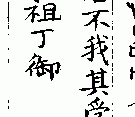 不我其受
祖丁御